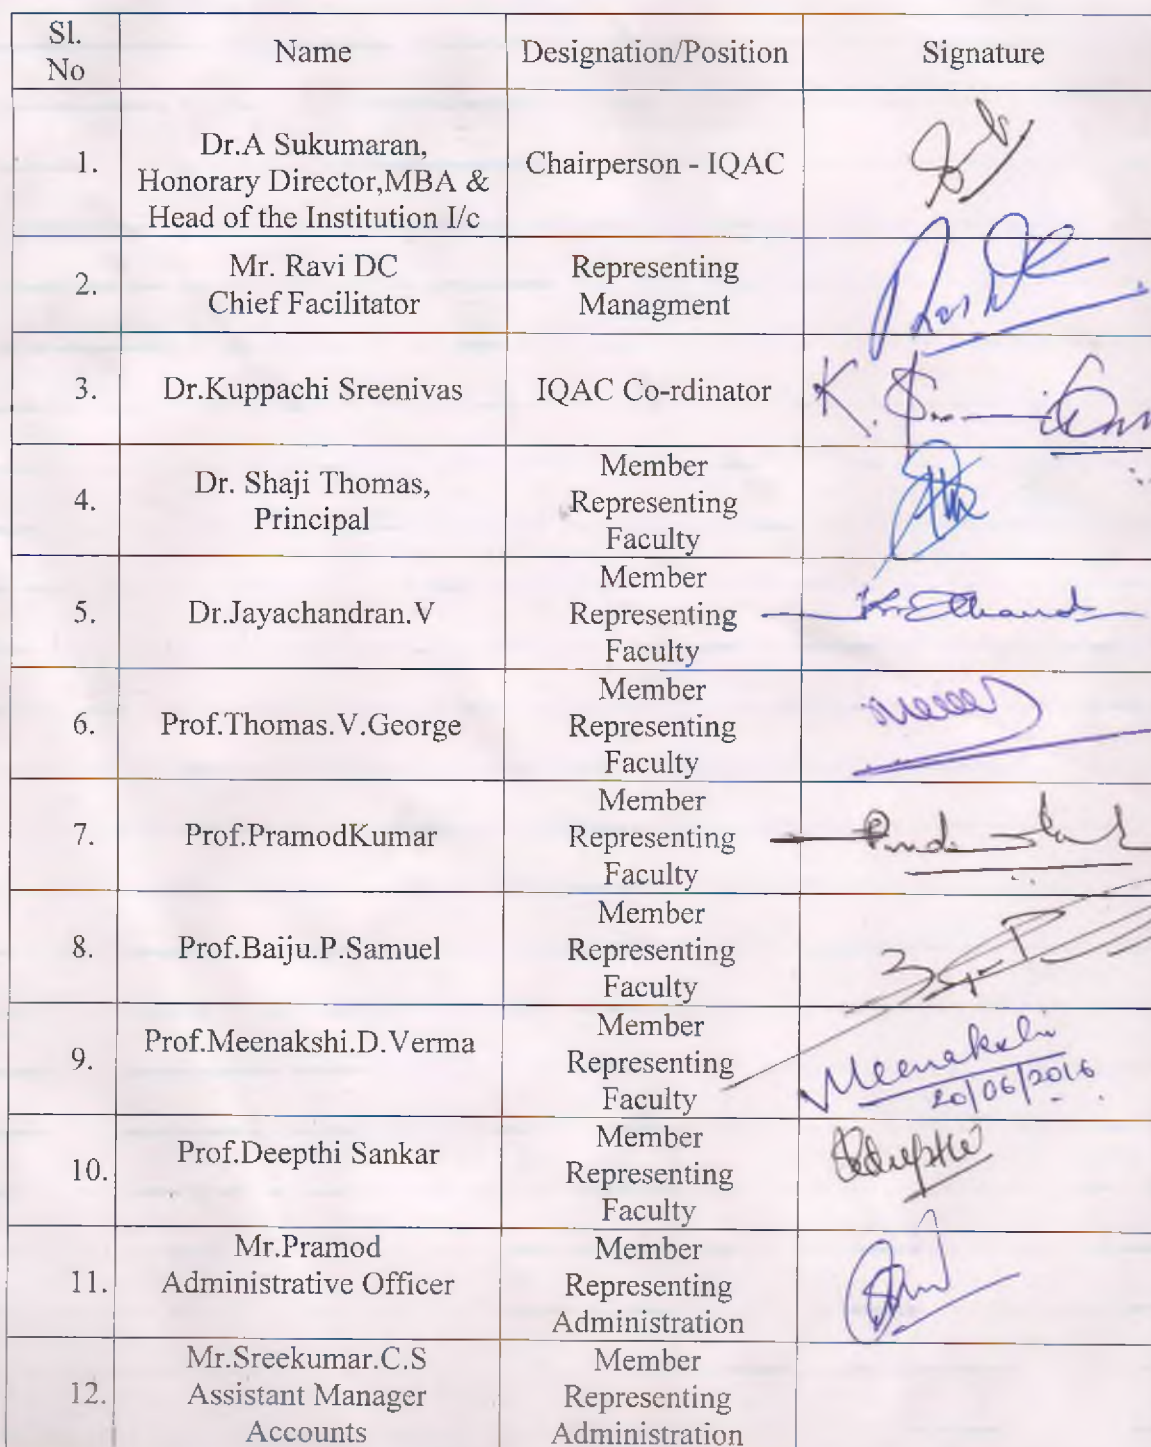 Sl.
No
Name
Designation/Position
Signature
1.
Dr.A Sukumaran,
Honorary Director,MBA &
Head of the Institution I/c
Chairperson - IQAC
2.
Mr. Ravi DC
Chief Facilitator
Representing
Managment
Ravi DC
3.
Dr.Kuppachi Sreenivas
IQAC Co-rdinator
K.
4.
Dr. Shaji Thomas,
Principal
Member
Representing
Faculty
5.
Dr.Jayachandran.V
Member
Representing
Faculty
6.
Prof.Thomas.V.George
Member
Representing
Faculty
7.
Prof.PramodKumar
Member
Representing
Faculty
8.
Prof.Baiju.P.Samuel
Member
Representing
Faculty
9.
Prof.Meenakshi.D.Verma
Member
Representing
Faculty
Meenakshi
20/06/2016
10.
Prof.Deepthi Sankar
Member
Representing
Faculty
11.
Mr.Pramod
Administrative Officer
Member
Representing
Administration
12.
Mr.Sreekumar.C.S
Assistant Manager
Accounts
Member
Representing
Administration